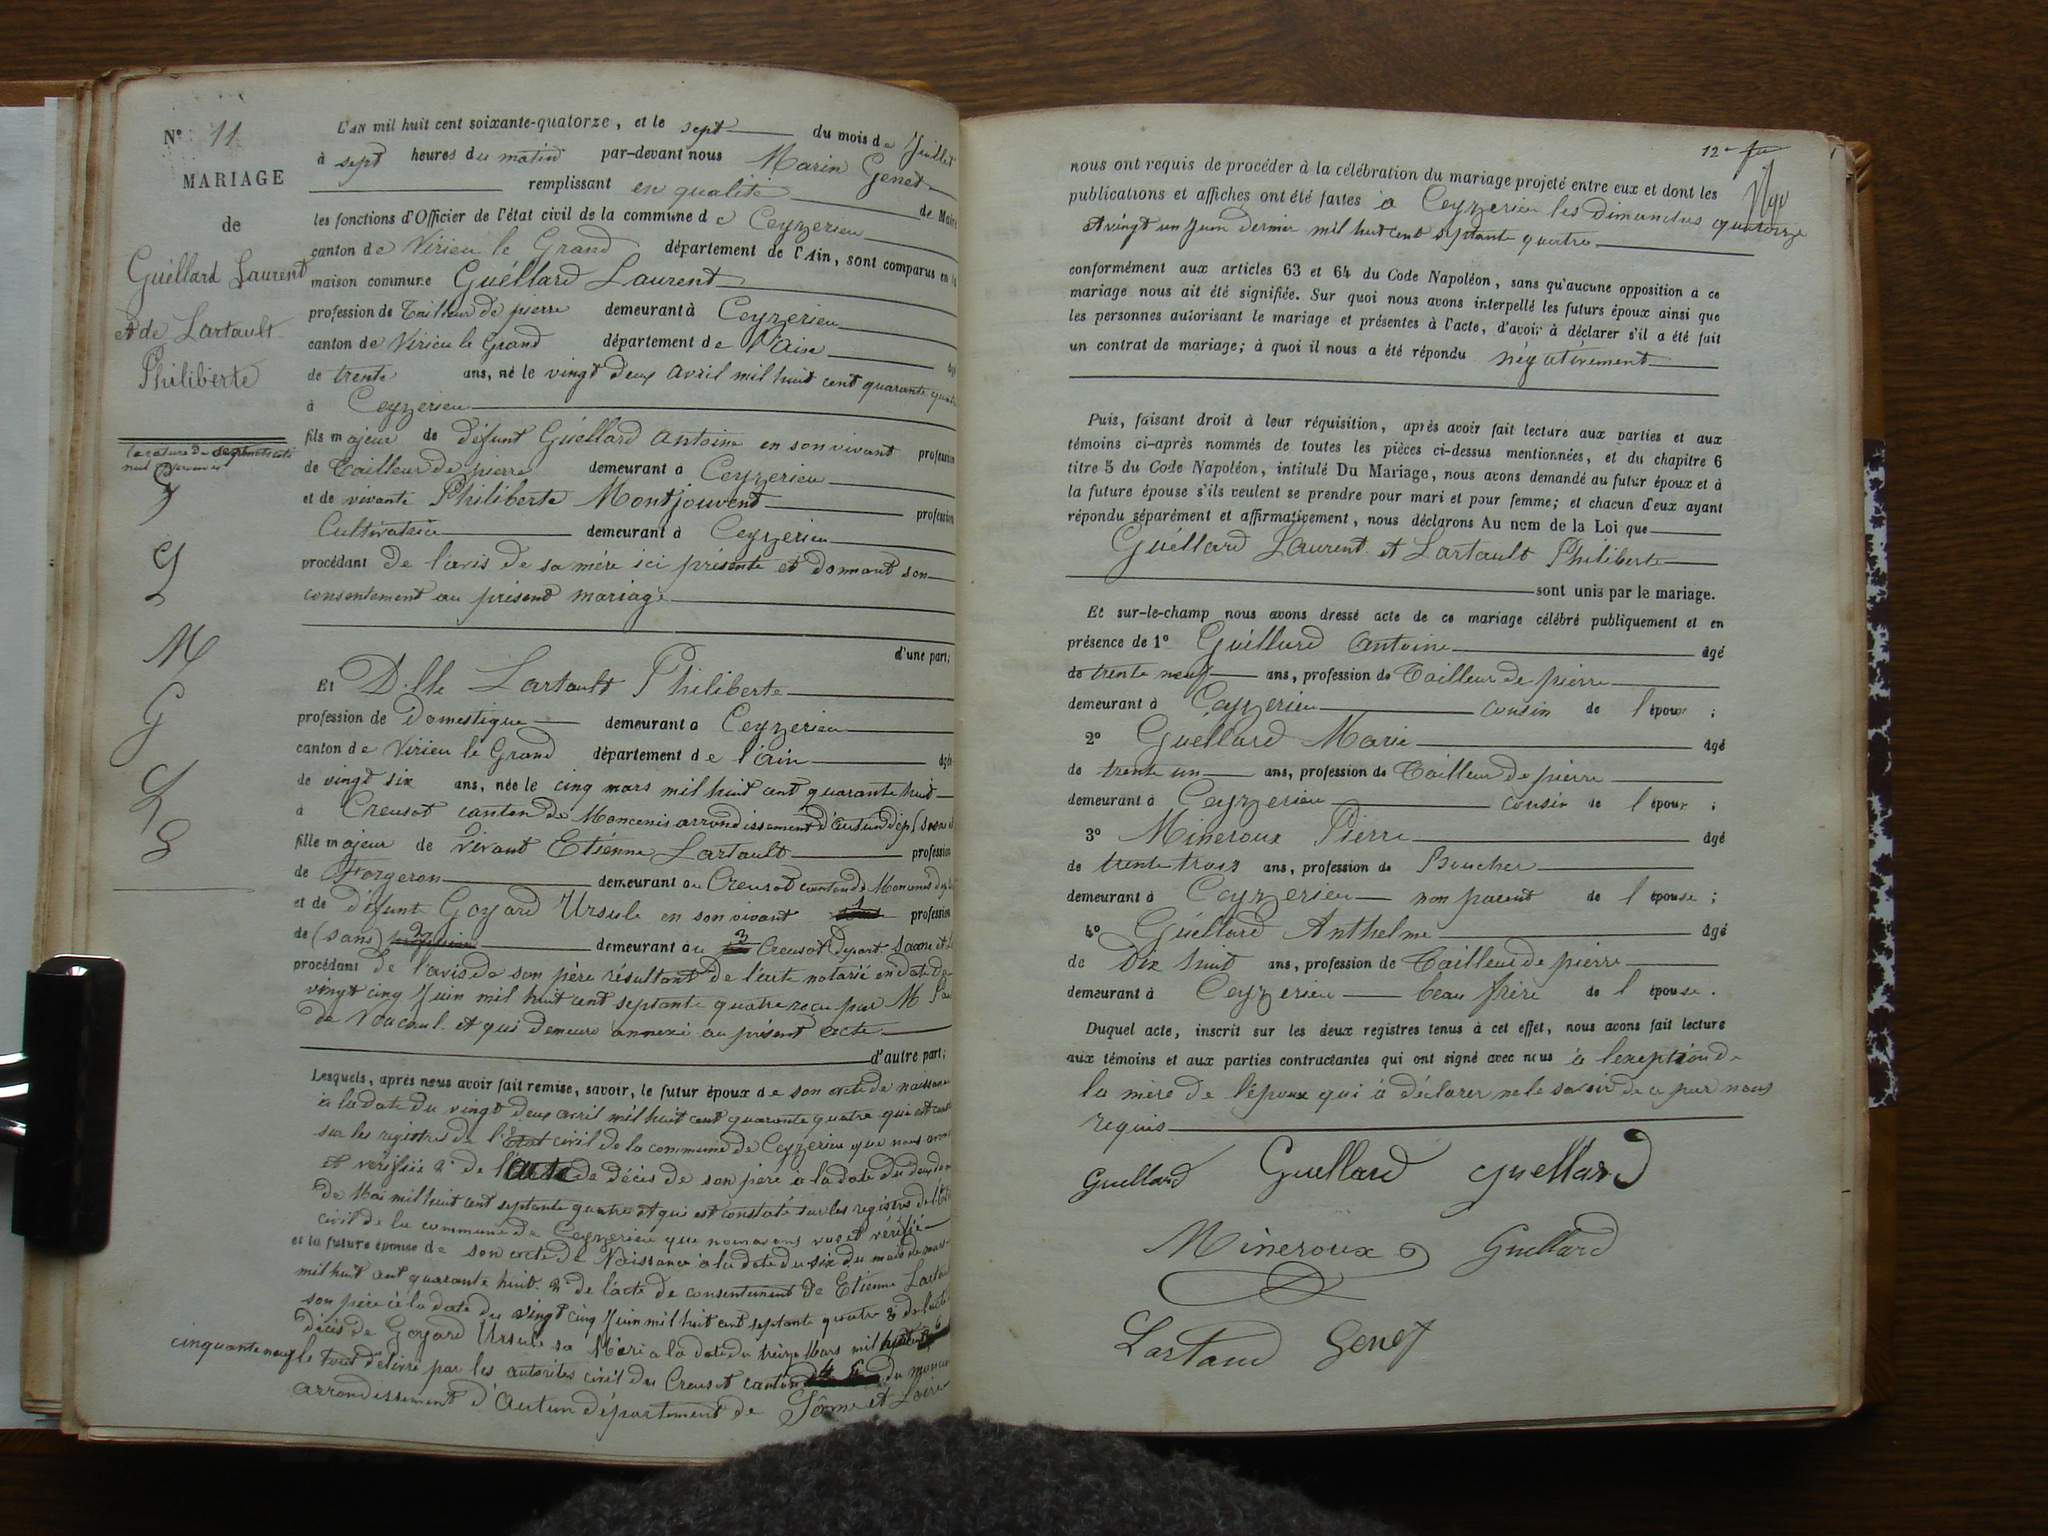 N° 11
MARIAGE
de
Guéllard Laurent
et de Lartault
Philiberte
G
L
M
G
L
G
L'AN mil huit cent soixante-quatorze, et le sept du mois de Juillet
à sept heures du matin par-devant nous Marin Genet
remplissant en qualité de Maire
les fonctions d'Officier de l'état civil de la commune de Ceyzerieu
canton de Virieu le Grand département de l'Ain, sont comparus en la
maison commune Guéllard Laurent
profession de Tailleur de pierre demeurant à Ceyzerieu
canton de Virieu le Grand département de l'Ain
de trente ans, né le vingt deux avril mil huit cent quarante quatre
à Ceyzerieu
fils majeur de défunt Guéllard Antoine en son vivant profession
de Tailleur de pierre demeurant à Ceyzerieu
et de vivante Philiberte Montjouvent profession
Cultivatrice demeurant à Ceyzerieu
procédant de l'avis de sa mère ici présente et donnant son
consentement au présent mariage
d'une part;
Et Dlle Lartault Philiberte
profession de Domestique demeurant à Ceyzerieu
canton de Virieu le Grand département de l'ain âgée
de vingt six ans, née le cinq mars mil huit cent quarante huit
à Creusot canton de Moncenis arrondissement d'Autun dép (Saone et
fille majeur de vivant Etiénne Lartault profession
de Forgeron demeurant au Creusot canton de Moncenis
et de défunte Goyard Ursule en son vivant profession
de (sans) demeurant au Creusot Depart Saone et
procédant de l'avis de son père résultant de l'acte notarié en date de
vingt cinq Juin mil huit cent septante quatre reçu par M
et qui demeure annexé au présent acte
d'autre part;
Lesquels, après nous avoir fait remise, savoir, le futur époux de son acte de naissance
à la date du vingt deux avril mil huit cent quarante quatre qui est
sur les registres de l'Etat civil de la commune de Ceyzerieu que nous avons
et vérifié 2° de l'acte de décès de son père à la date du
de Mai mil huit cent septante quatre et qui est constaté sur les registres de l'Etat
civil de la commune de Ceyzerieu que nous avons vus et vérifié
et la future épouse de son acte de Naissance à la date du six du mois de mars
mil huit cent quarante huit. 2° de l'acte de consentement de Etienne Lartault
son père à la date du vingt cinq Juin mil huit cent septante quatre 3° de l'acte
décès de Goyard Ursule sa Mère à la date du treize Mars mil huit cent
cinquante neuf le tout délivré par les autorités civil du Creusot canton du
arrondissement d'Autun département de Saône et Loire
12e
nous ont requis de procéder à la célébration du mariage projeté entre eux et dont les
publications et affiches ont été faites à Ceyzerieu les dimanches quatorze
et vingt un Juin dernier mil huit cent septante quatre
conformément aux articles 63 et 64 du Code Napoléon, sans qu'aucune opposition à ce
mariage nous ait été signifiée. Sur quoi nous avons interpellé les futurs époux ainsi que
les personnes autorisant le mariage et présentes à l'acte, d'avoir à déclarer s'il a été fait
un contrat de mariage; à quoi il nous a été répondu négativement
Puis, faisant droit à leur réquisition, après avoir fait lecture aux parties et aux
témoins ci-après nommés de toutes les pièces ci-dessus mentionnées, et du chapitre 6
titre 5 du Code Napoléon, intitulé Du Mariage, nous avons demandé au futur époux et à
la future épouse s'ils veulent se prendre pour mari et pour femme; et chacun d'eux ayant
répondu séparément et affirmativement, nous déclarons Au nom de la Loi que
Guéllard Laurent et Lartault Philiberte
sont unis par le mariage.
Et sur-le-champ nous avons dressé acte de ce mariage célébré publiquement et en
présence de 1° Guéllard Antoine âgé
de trente neuf ans, profession de Tailleur de pierre
demeurant à Ceyzerieu cousin de l'époux ;
2° Guéllard Marie âgé
de trente un ans, profession de Tailleur de pierre
demeurant à Ceyzerieu cousin de l'époux ;
3° Mineroux Pierre âgé
de trente trois ans, profession de Boucher
demeurant à Ceyzerieu non parent de l'épouse ;
4° Guéllard Anthelme âgé
de Dix huit ans, profession de Tailleur de pierre
demeurant à Ceyzerieu beau frère de l'épouse.
Duquel acte, inscrit sur les deux registres tenus à cet effet, nous avons fait lecture
aux témoins et aux parties contractantes qui ont signé avec nous à l'exeption de
la mère de l'époux qui à déclarer ne le savoir de ce par nous
requis
Guellard Guellard Guellard
Mineroux Guellard
Lartaud Genet